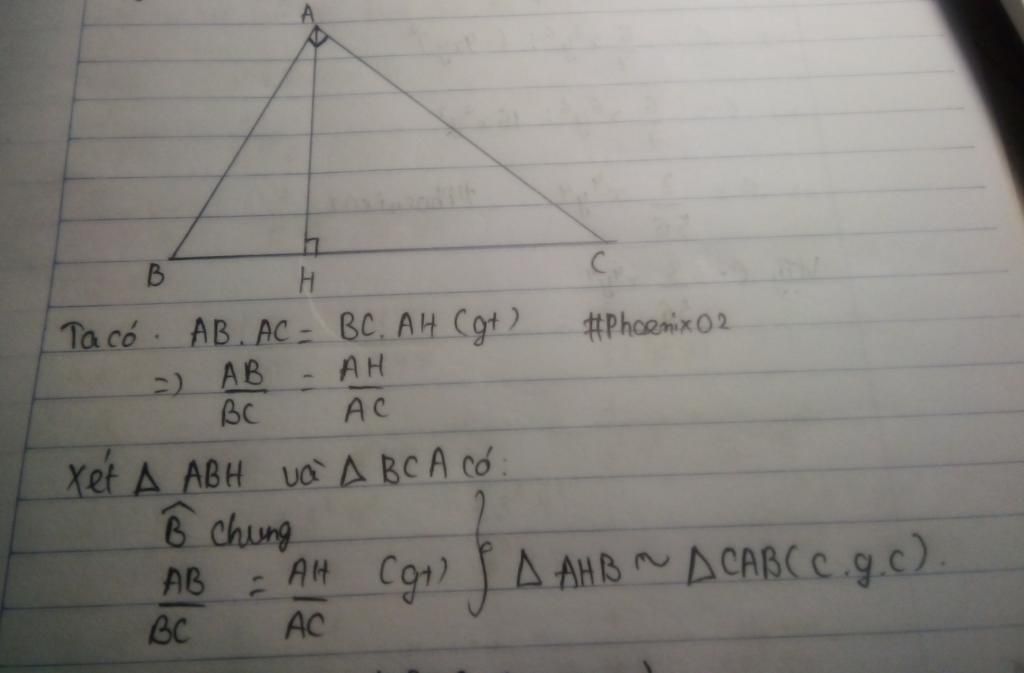 A
B
H
C
Ta có. AB.AC = BC.AH (gt) #Phoenix02
=) AB/BC = AH/AC
Xét Δ ABH và Δ BCA có:
B̂ chung
AB/BC = AH/AC (gt) } Δ AHB ~ ΔCAB (c.g.c).